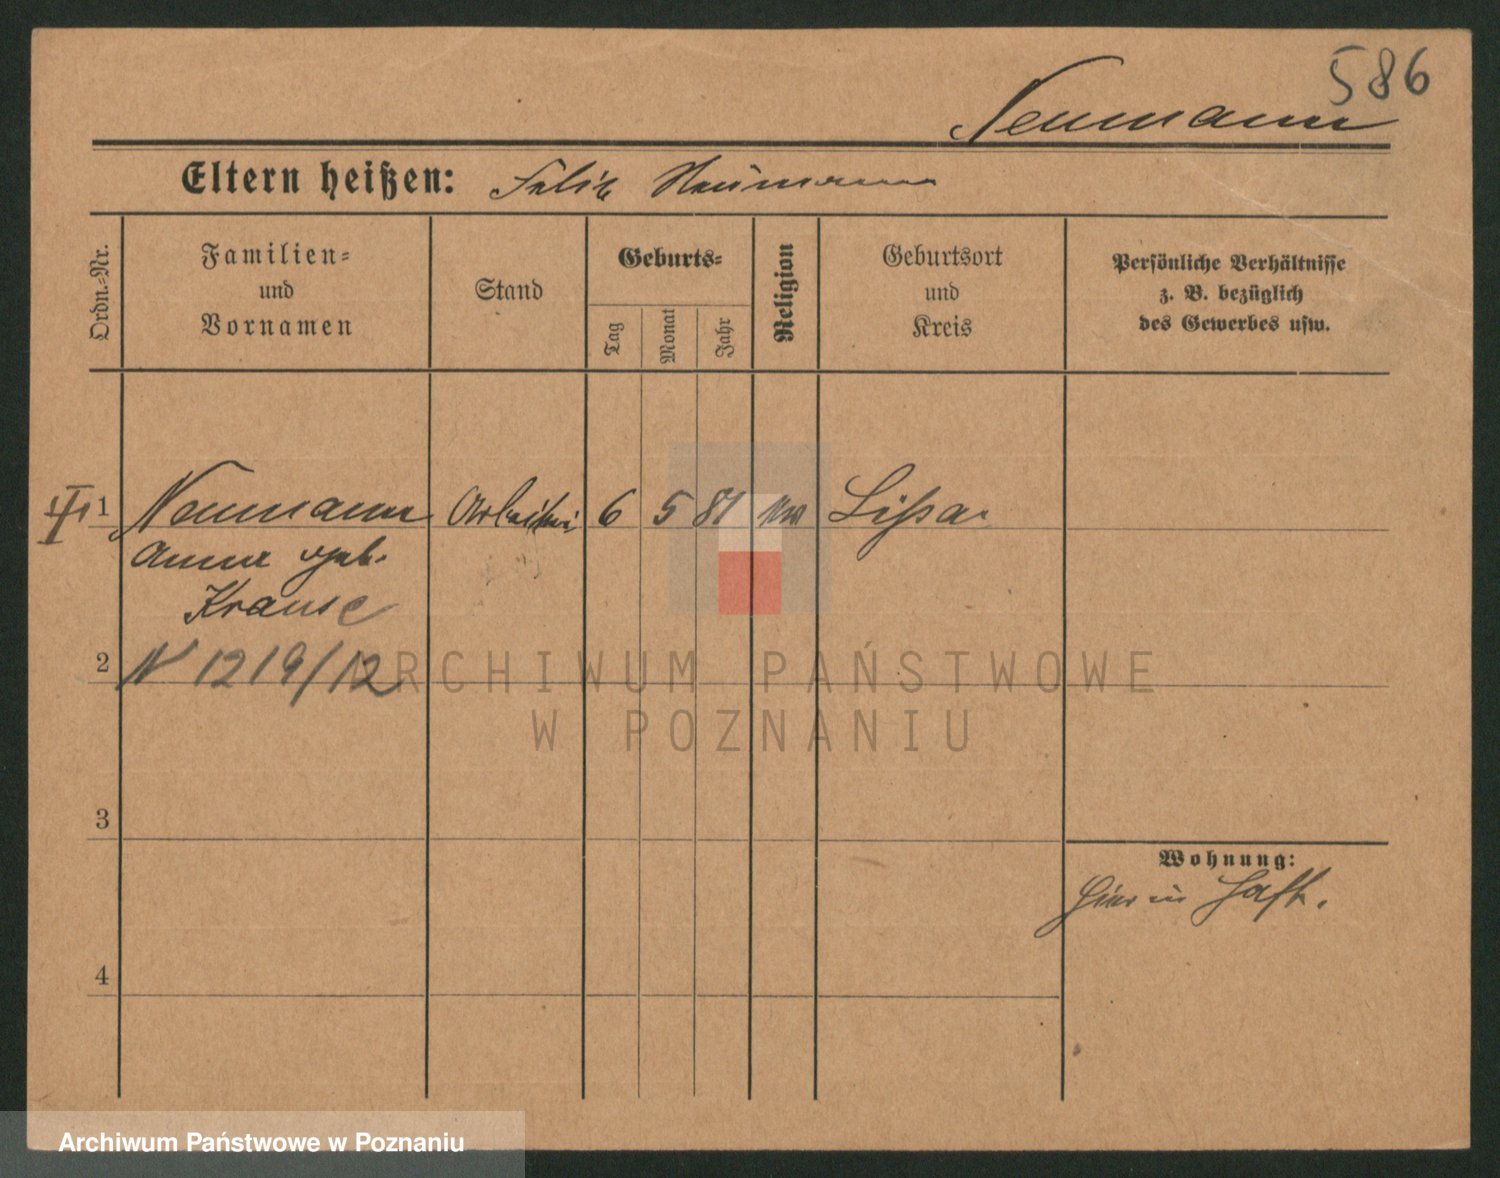 586
Neumann
Eltern heißen: Felix Neumann
Ordn.-Nr.
Familien-
und
Vornamen
Stand
Geburts-
Tag
Monat
Jahr
Religion
Geburtsort
und
Kreis
Persönliche Verhältnisse
z. B. bezüglich
des Gewerbes usw.
1 Neumann Arbeiterin 6 5 81 Lissa
Anna geb.
Krause
2 N 1219/12
3
4
Wohnung:
Hier in Haft.
ARCHIWUM PAŃSTWOWE
W POZNANIU
Archiwum Państwowe w Poznaniu